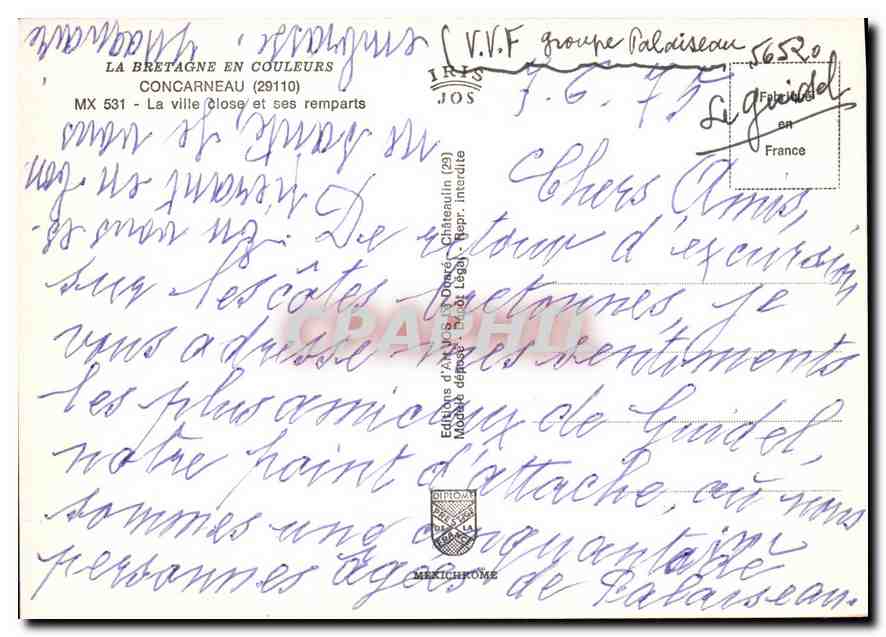 V.V.F groupe Palaiseau
56520
Le guidel
7.6.75
LA BRETAGNE EN COULEURS
CONCARNEAU (29110)
MX 531 - La ville close et ses remparts
IRIS
JOS
Fabriqué
en
France
Editions d'Art JOS Le Doaré - Châteaulin (29)
Modèle déposé - Dépôt Légal - Repr. interdite
CPAPHIL
Chers Amis,
De retour d'excursion
sur les côtes bretonnes, je
vous adresse mes sentiments
les plus amicaux de Guidel,
notre point d'attache, où nous
sommes une cinquantaine de
personnes âgées de Palaiseau.
en bon
ne santé, je vous
embrasse.
DIPLOME
PRESTIGE
DE LA
FRANCE
MEXICHROME